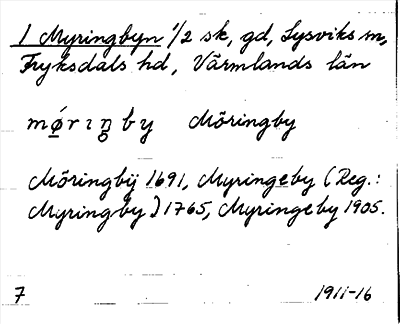 1 Myringbyn 1/2 sk, gd, Lysviks sn,
Fryksdals hd, Värmlands län
mǿrıŋby Möringby
Möringbÿ 1691, Myringeby (Reg.:
Myringby) 1765, Myringeby 1905.
7 1911-16